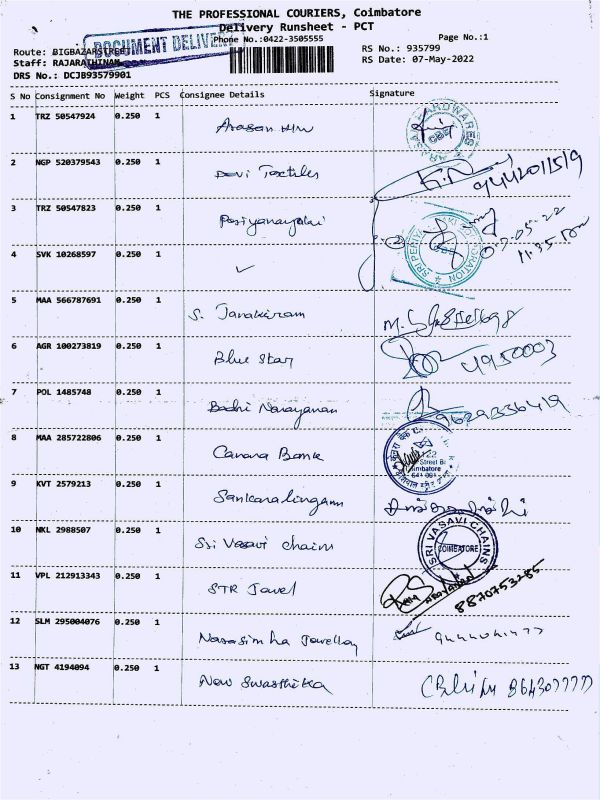 THE PROFESSIONAL COURIERS, Coimbatore
Delivery Runsheet - PCT
DOCUMENT DELIVERY
Phone No.:0422-3505555
Page No.:1
Route: BIGBAZARSTREET
RS No.: 935799
Staff: RAJARATHINAM
RS Date: 07-May-2022
DRS No.: DCJB93579901
S No Consignment No Weight PCS Consignee Details Signature
1 TRZ 50547924 0.250 1 Arasan H/W
2 NGP 520379543 0.250 1 Devi Textiles
3 TRZ 50547823 0.250 1 Periyanayaki
07-05-22
11.35
4 SVK 10268597 0.250 1 ✓
5 MAA 566787691 0.250 1 S. Janakiram
6 AGR 100273819 0.250 1 Blue Star 4950003
7 POL 1485748 0.250 1 Badri Narayanan 9629336419
8 MAA 285722806 0.250 1 Canara Bank
9 KVT 2579213 0.250 1 Sankaralingam
10 NKL 2988507 0.250 1 Sri Vasavi chains SRI VASAVI CHAINS COIMBATORE
11 VPL 212913343 0.250 1 STR Jewel 8870753285
12 SLM 295004076 0.250 1 Narasimha Jewellery
13 NGT 4194094 0.250 1 New Swasthika